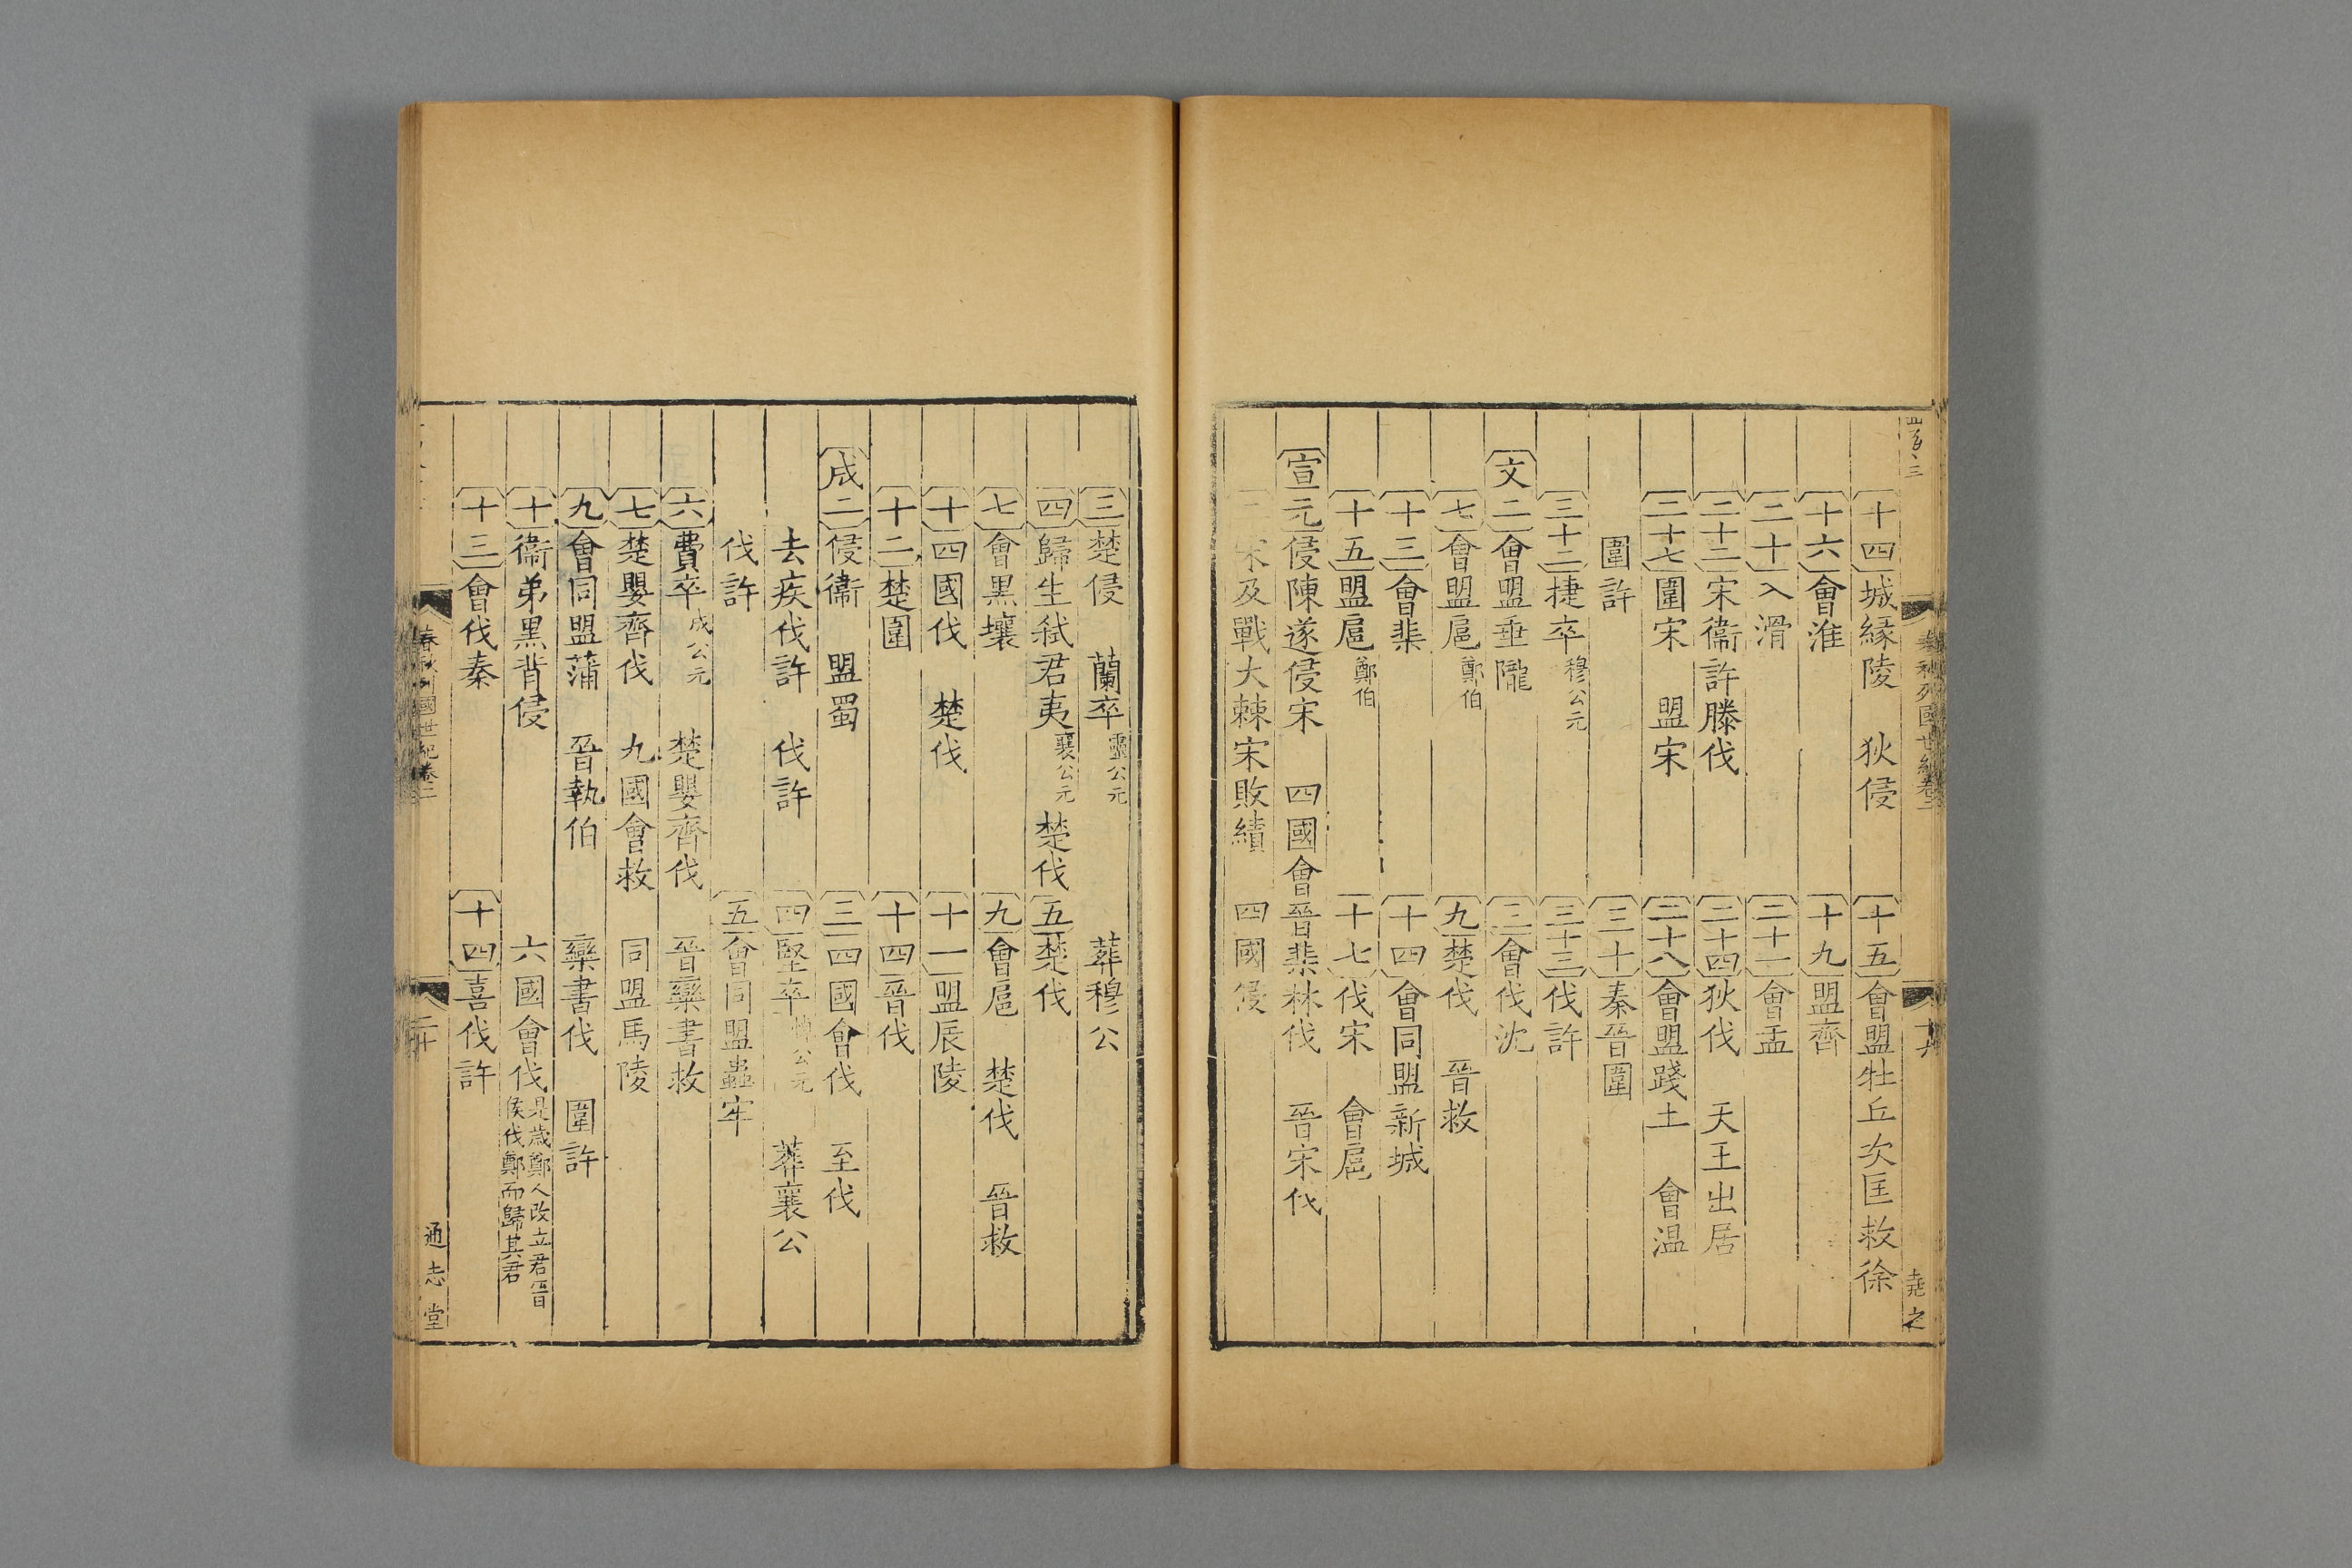 十四城緣陵　狄侵　十五會盟牡丘次匡救徐
十六會淮　十九盟齊
二十入滑　二十一會盂
二十二宋衞許滕伐　二十四狄伐　天王出居
二十七圍宋　盟宋　二十八會盟踐土　會温
圍許　三十秦晉圍
三十二捷卒穆公元　三十三伐許
文二會盟垂隴　三會伐沈
七會盟扈鄭伯　九楚伐　晉救
十三會棐　十四會同盟新城
十五盟扈鄭伯　十七伐宋　會扈
宣元侵陳遂侵宋　四國會晉棐林伐　晉宋伐
宋及戰大棘宋敗績　四國侵
三楚侵　蘭卒靈公元　葬穆公
四歸生弒君夷襄公元　楚伐　五楚伐
七會黑壤　九會扈　楚伐　晉救
十四國伐　楚伐　十一盟辰陵
十二楚圍　十四晉伐
成二侵衞　盟蜀　三四國會伐　至伐
去疾伐許　伐許　四堅卒悼公元　葬襄公
伐許　五會同盟蟲牢
六費卒成公元　楚嬰齊伐　晉欒書救
七楚嬰齊伐　九國會救　同盟馬陵
九會同盟蒲　晉執伯　欒書伐　圍許
十衞弟黑背侵　六國會伐是歳鄭人改立君晉侯伐鄭而歸其君
十三會伐秦　十四喜伐許
春秋列國世紀卷二　二十　通志堂